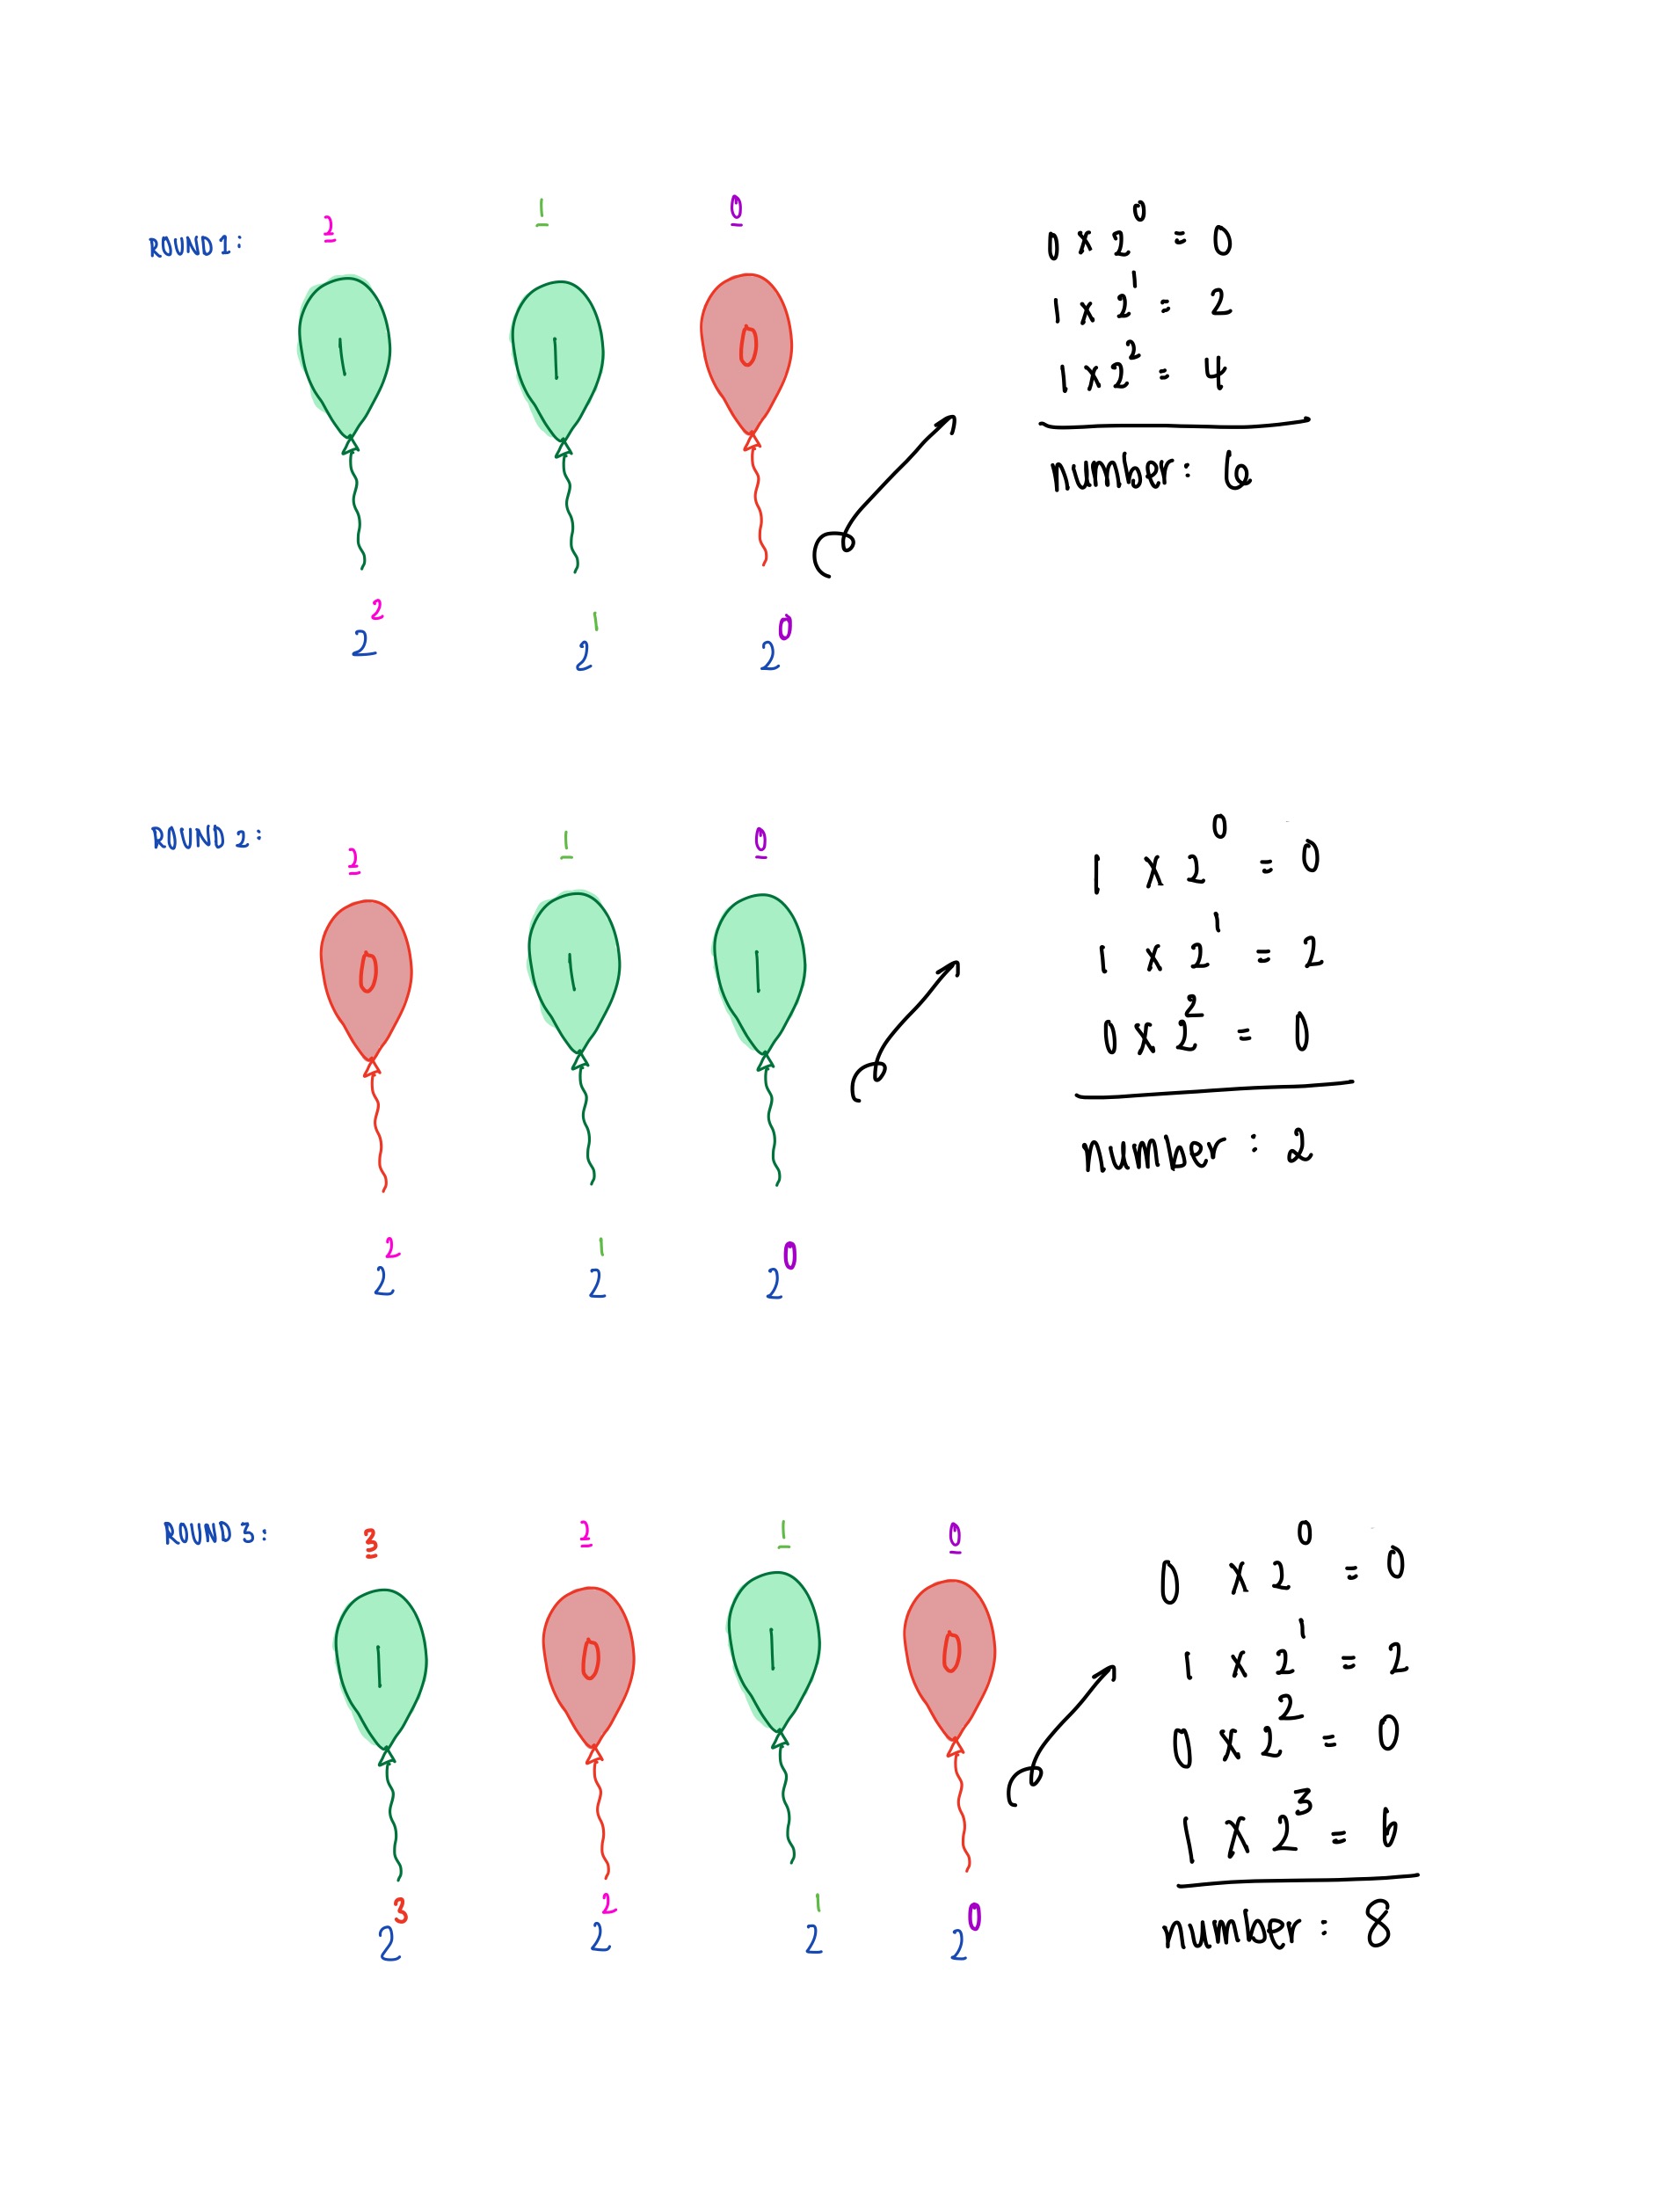 ROUND 1:
2 1 0
1 1 0
2² 2¹ 2⁰
0 x 2⁰ = 0
1 x 2¹ = 2
1 x 2² = 4
number: 6
ROUND 2:
2 1 0
0 1 1
2² 2¹ 2⁰
1 x 2⁰ = 0
1 x 2¹ = 2
0 x 2² = 0
number: 2
ROUND 3:
3 2 1 0
1 0 1 0
2³ 2² 2¹ 2⁰
0 x 2⁰ = 0
1 x 2¹ = 2
0 x 2² = 0
1 x 2³ = 6
number: 8